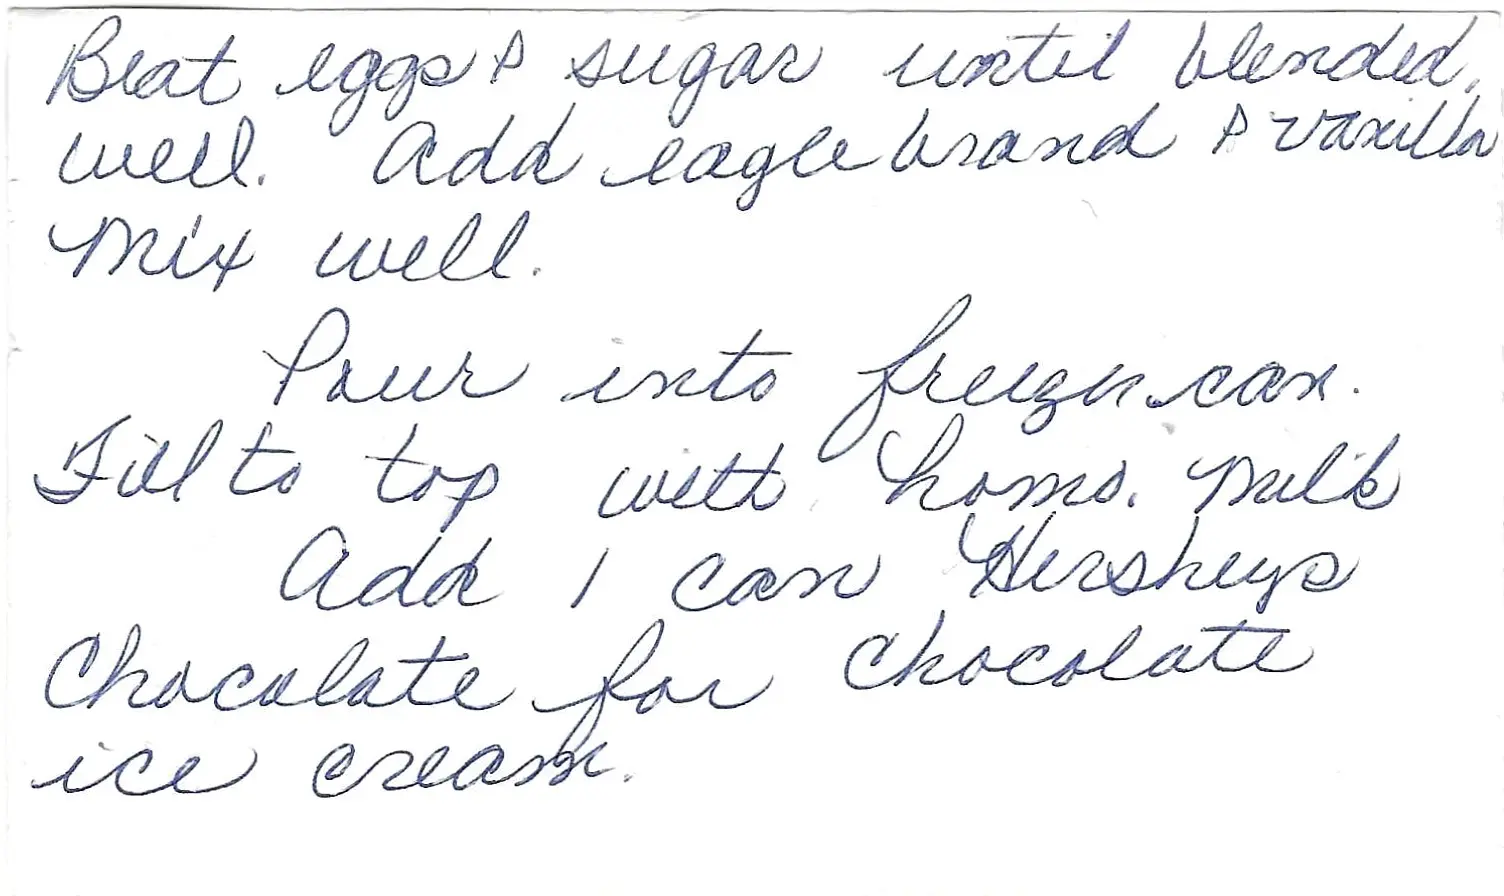 Beat eggs & sugar until blended
well. Add eagle brand & vanilla
Mix well.
Pour into freezer can.
Fill to top with homo. milk
Add 1 can Hersheys
Chocolate for chocolate
ice cream.